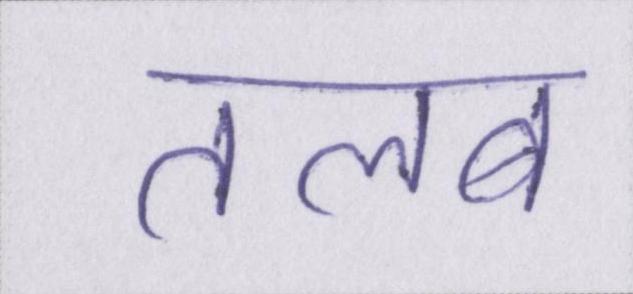 तलब